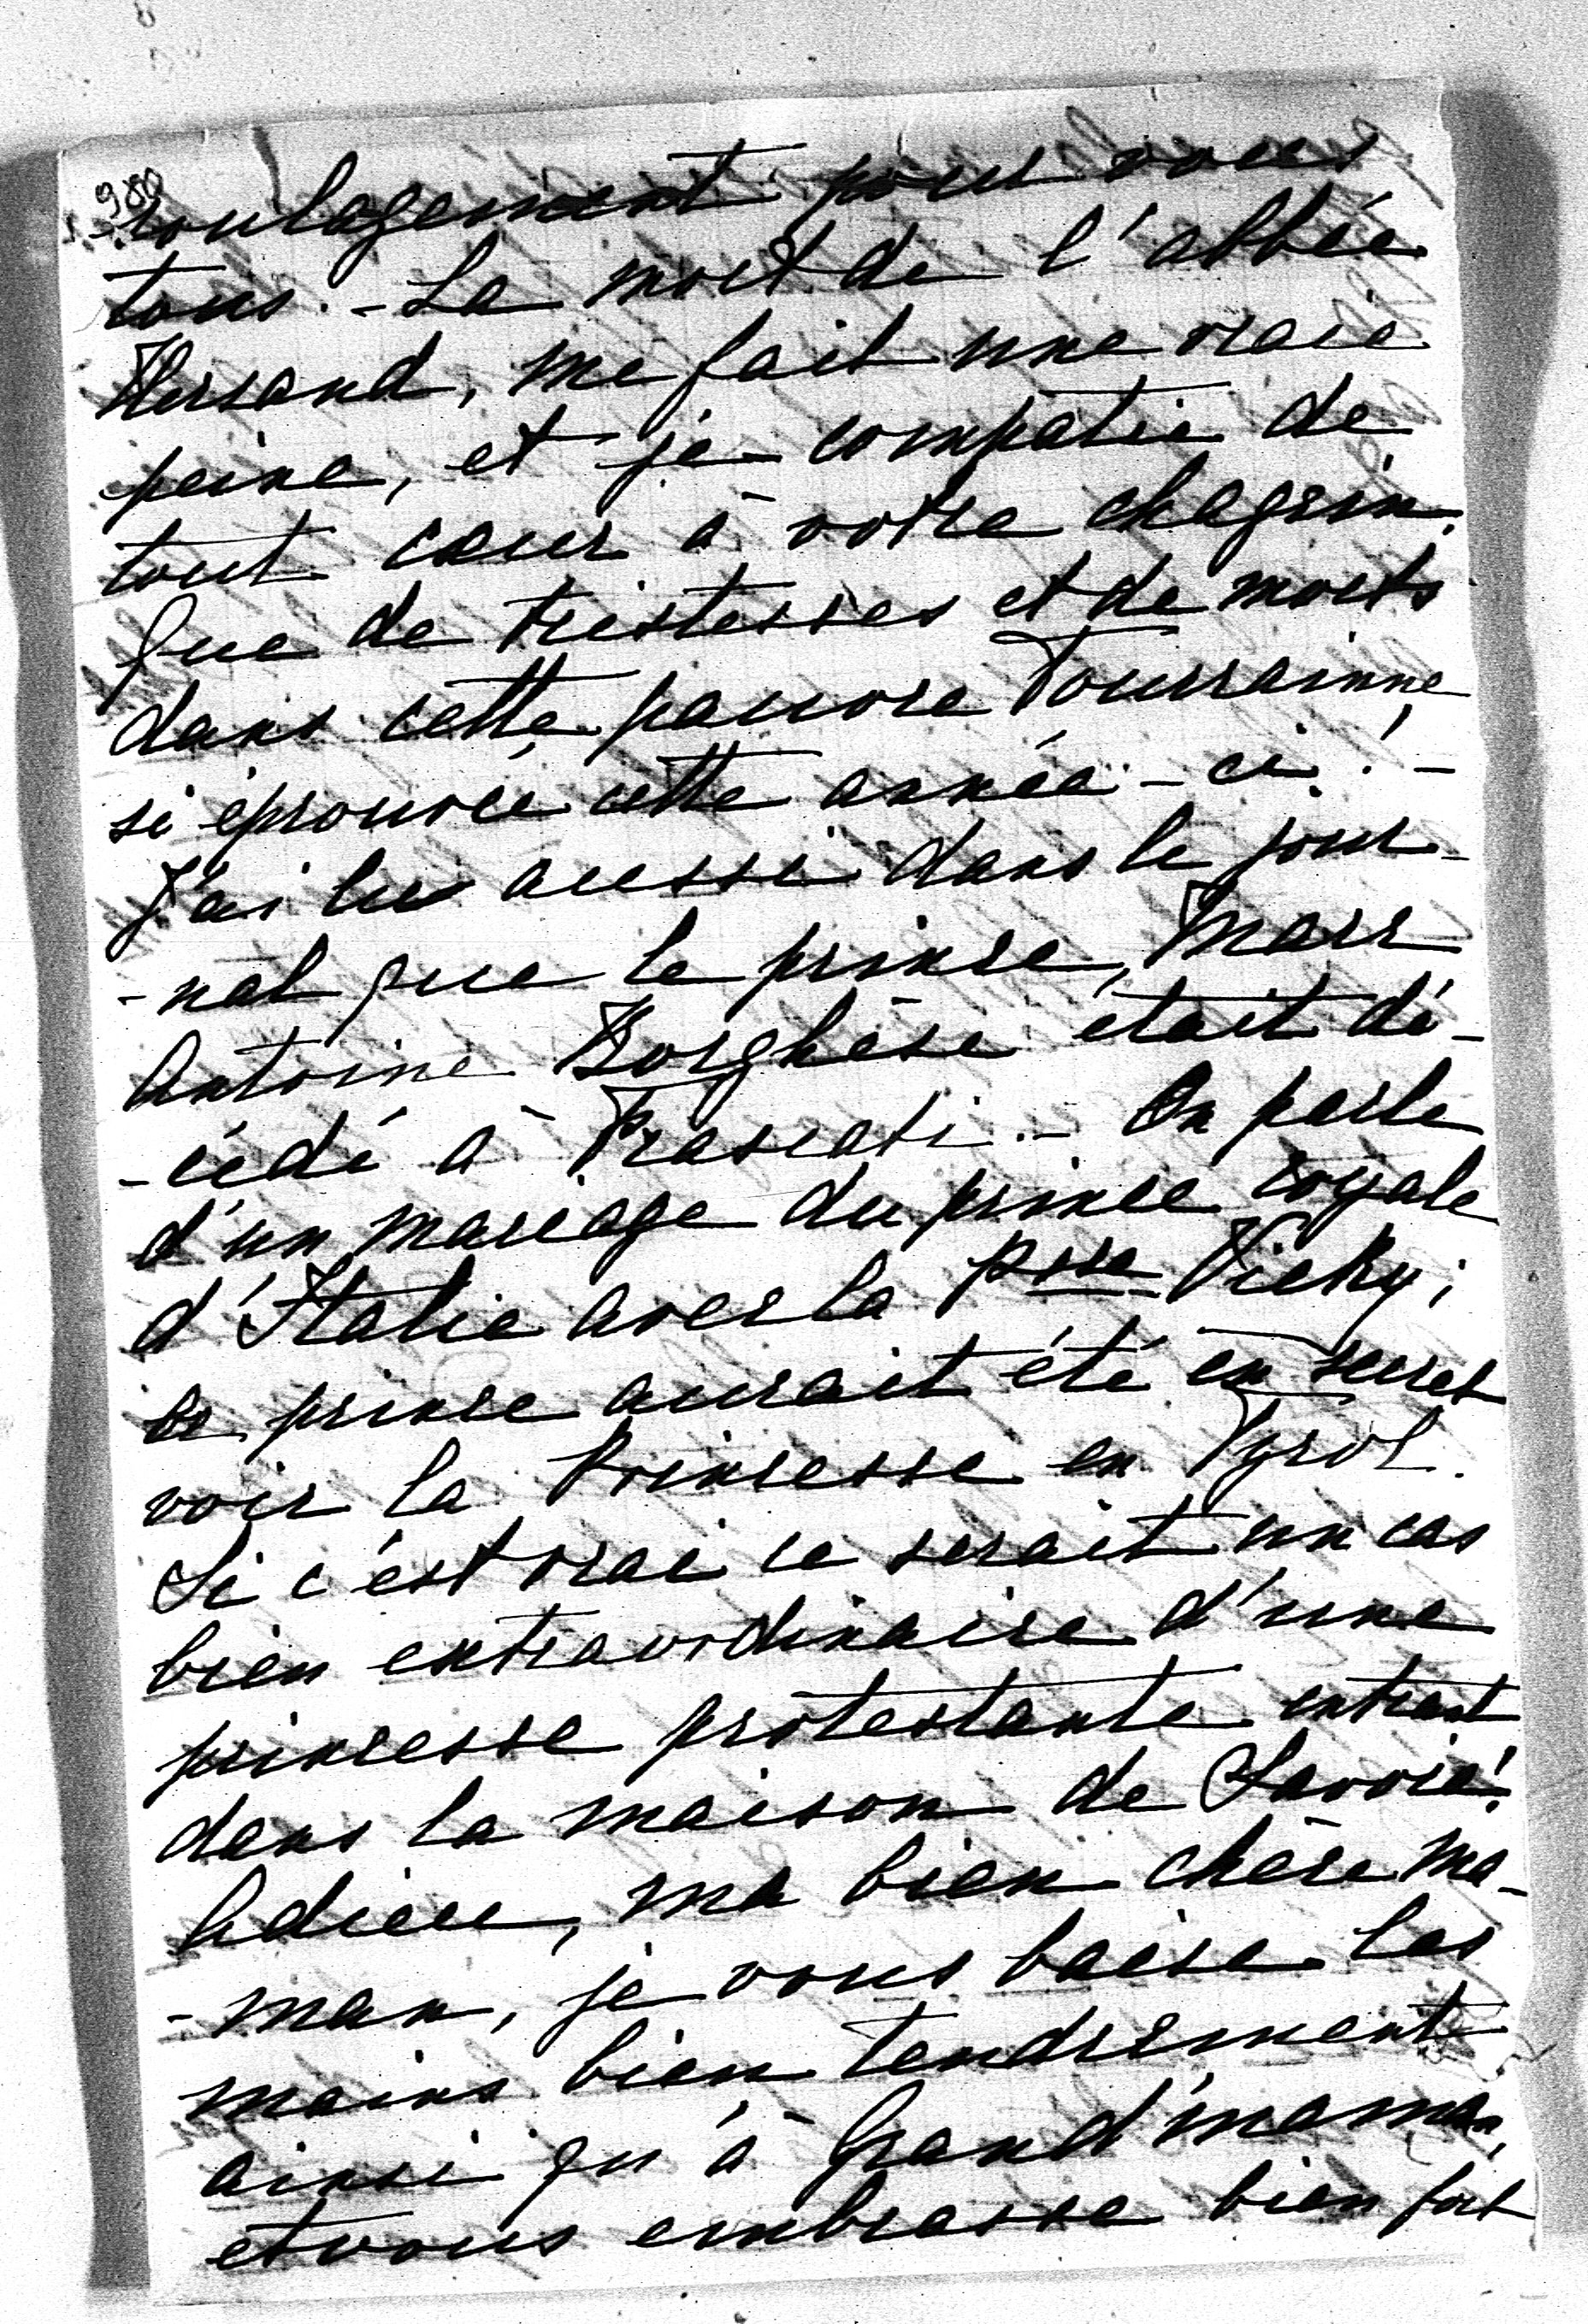 980
soulagement pour vous
tous. - La mort de l'abbée
Hersand, me fait une vraie
peine, et je compatie de
tout cœur à votre chagrin.
Que de tristesses et de morts
dans cette pauvre Tourrainne
si éprouvée cette année-ci! -
J'ai lu aussi dans le jour-
-nal que le prince, Marc
Antoine Borghèse était dé-
-cédé à Frascati. - On parle
d'un mariage du prince royale
d'Italie avec la Psse Vicky;
le prince aurait été en secret
voir la Princesse en Tyrol.
Si c'est vrai ce serait un cas
bien extraordinaire d'une
princesse protestante entrant
dans la maison de Savoie!
Adieu, ma bien chère ma-
-man, je vous baise les
mains bien tendrement
ainsi qu'à Grand'maman,
et vous embrasse bien fort